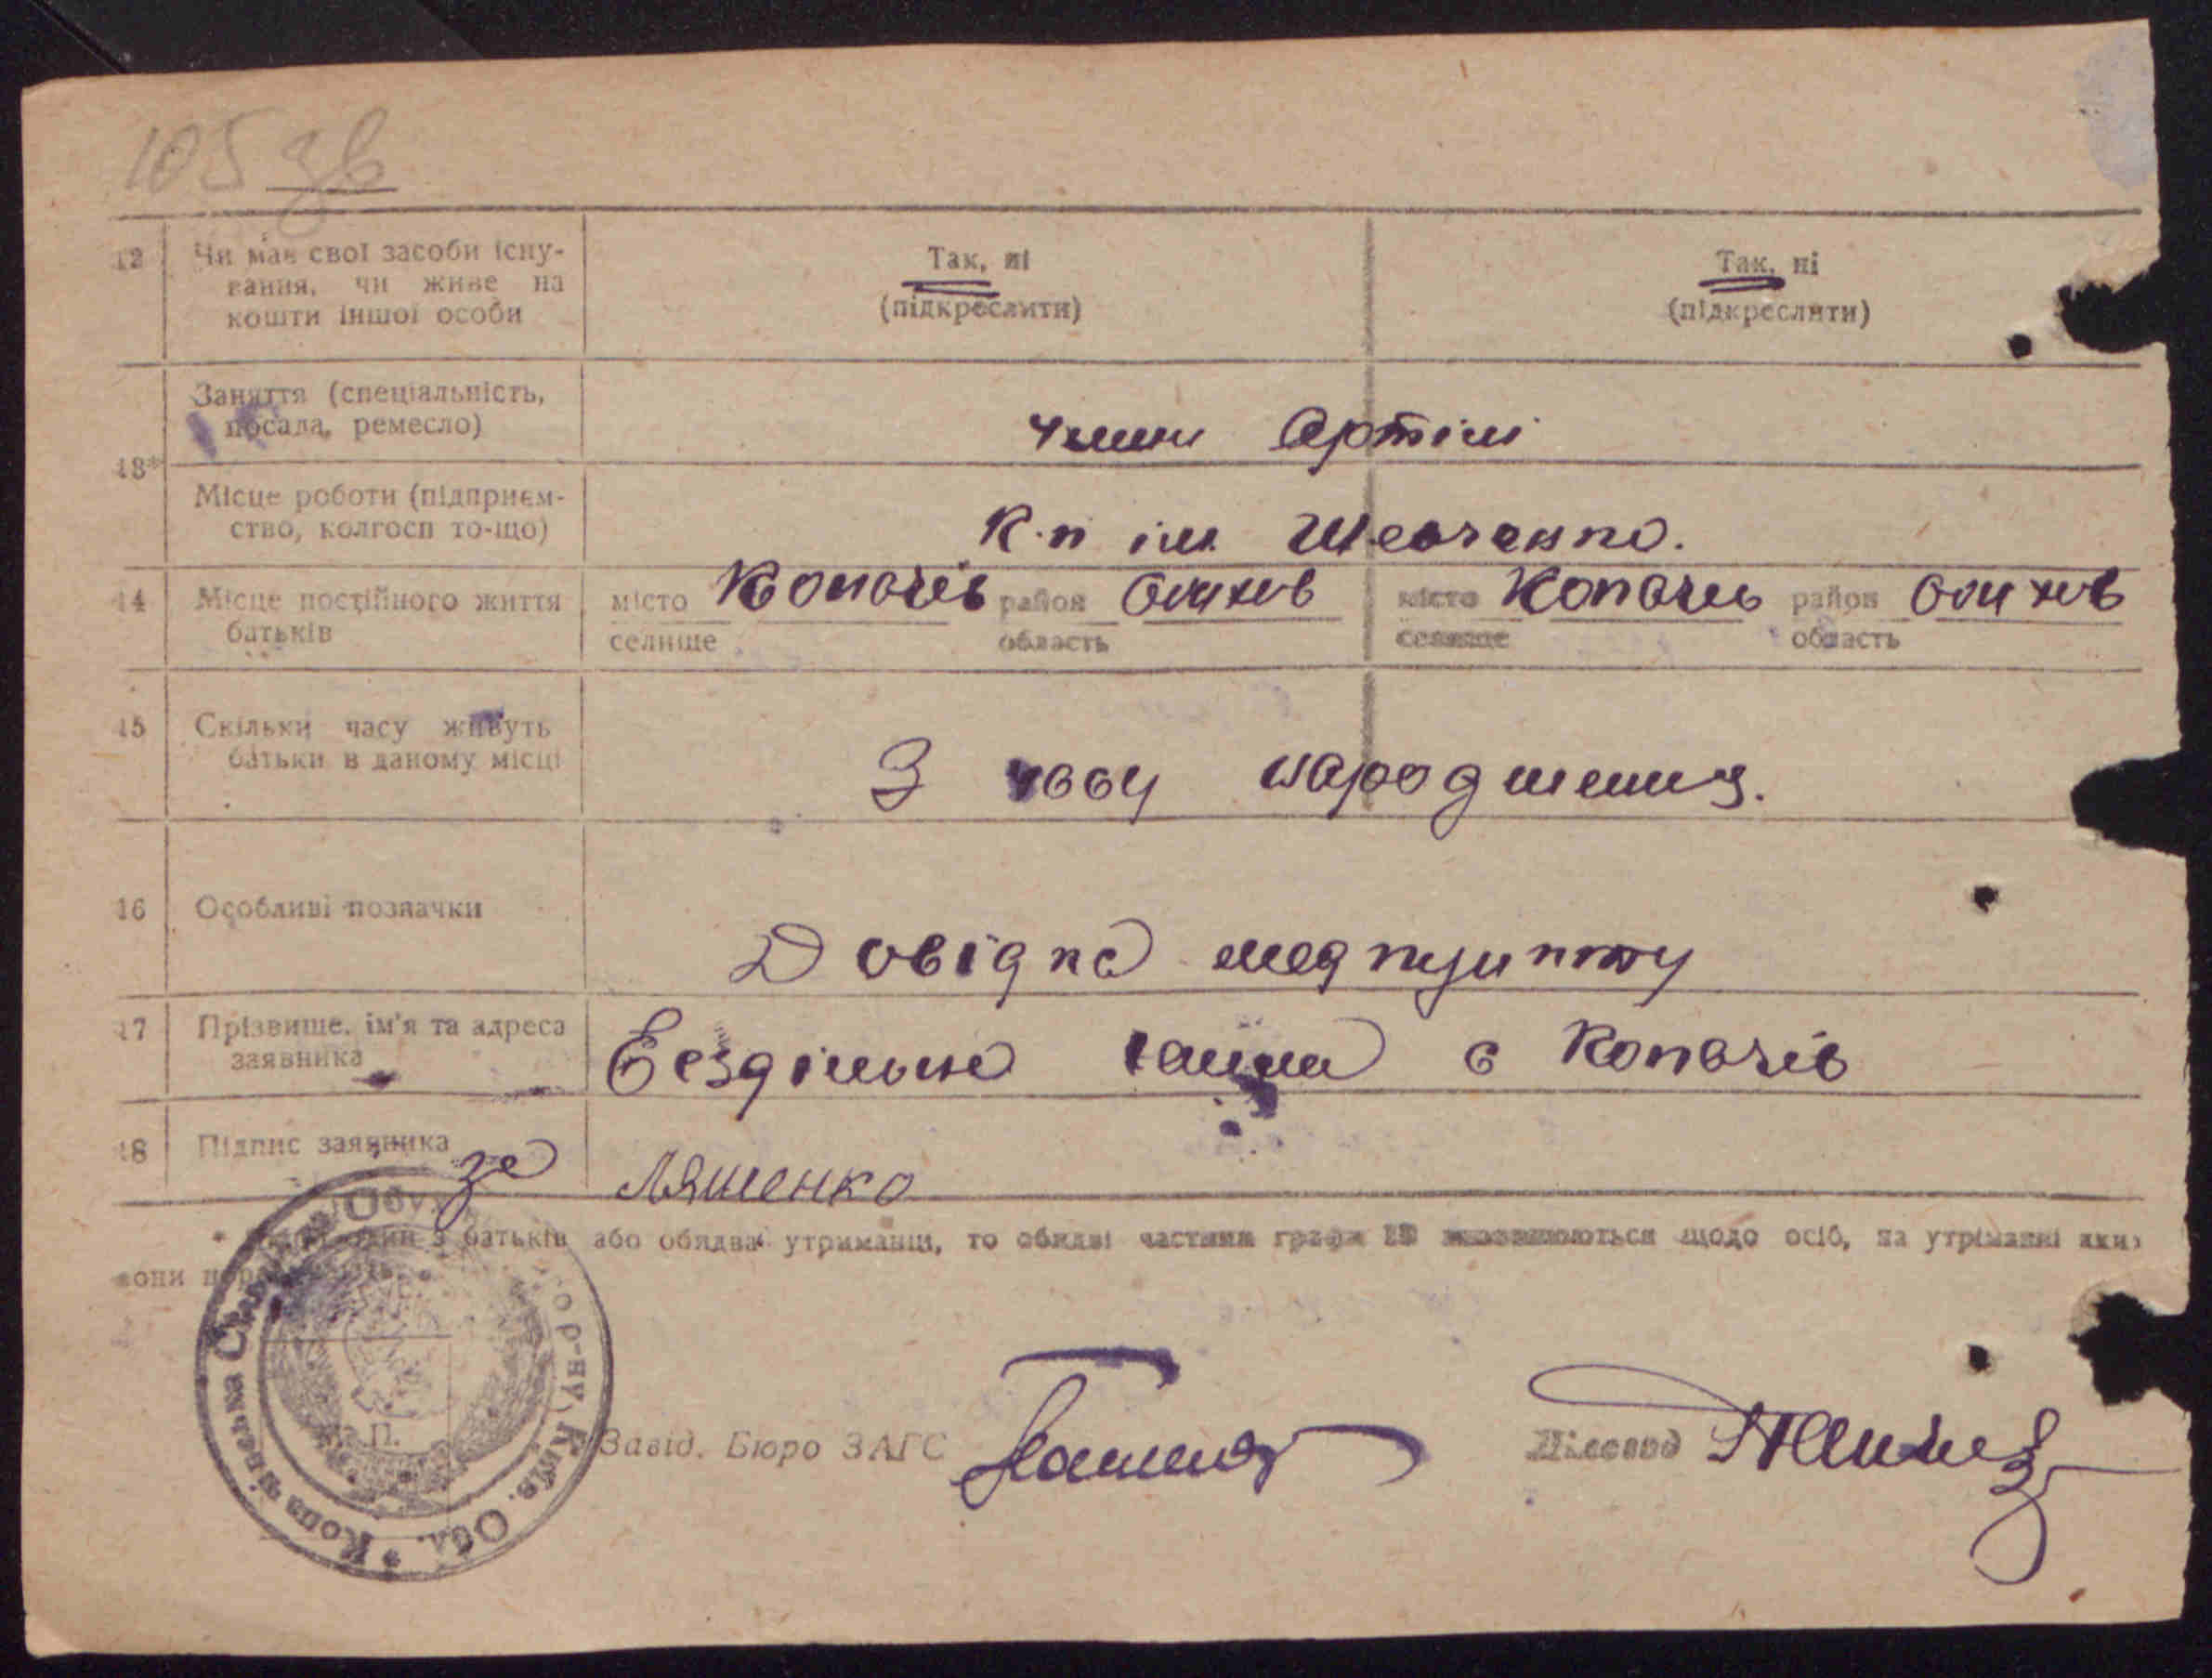 105 зв
12 Чи має свої засоби існу-
вання, чи живе на
кошти іншої особи
Так, ні
(підкреслити)
Так, ні
(підкреслити)
13*
Заняття (спеціальність,
посада, ремесло)
члени Артілі
Місце роботи (підприєм-
ство, колгосп то-що)
К-п ім Шевченко.
14 Місце постійного життя
батьків
місто Копачів район
селище область
місто Копачів район
селище область
15 Скільки часу живуть
батьки в даному місці
З часу народження.
16 Особливі позначки
Довідка медпункту
17 Прізвище, ім'я та адреса
заявника
Бездільна с Копачів
18 Підпис заявника за Ляшенко
батьків або обидва утриманці, то обидві частини графи 13 заповнюються щодо осіб, на утріманні яких
вони
Копачівська Сільська Обух. р-ну, Київ. Обл.
П.
Завід. Бюро ЗАГС
Діловод